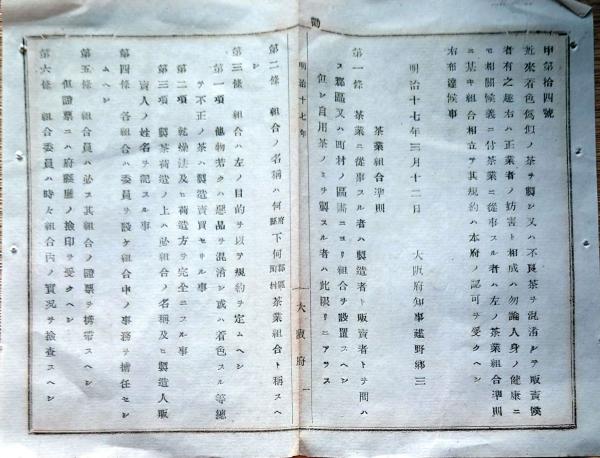 勸
甲第拾四號
近來着色僞似ノ茶ヲ製シ又ハ不良茶ヲ混淆シテ販賣候
者有之趣右ハ正業者ノ妨害ト相成ハ勿論人身ノ健康ニ
モ相關候義ニ付茶業ニ從事スル者ハ左ノ茶業組合準則
ニ基キ組合相立テ其規約ハ本府ノ認可ヲ受クヘシ
右布達候事
明治十七年三月十二日　大阪府知事建野郷三
茶業組合準則
第一條　茶業ニ從事スル者ハ製造者ト販賣者トヲ問ハ
ス郡區又ハ町村ノ區畫ニヨリ組合ヲ設置スヘシ
但シ自用茶ノミヲ製スル者ハ此限リニアラス
明治十七年　大阪府　一
第二條　組合ノ名稱ハ何府縣下何郡區町村茶業組合ト稱スヘ
シ
第三條　組合ハ左ノ目的ヲ以テ規約ヲ定ムヘシ
第一項　他物若クハ惡品ヲ混淆シ或ハ着色スル等總
テ不正ノ茶ハ製造賣買セサル事
第二項　乾燥法及ヒ荷造方ヲ完全ニスル事
第三項　製茶荷造ノ上ハ必組合ノ名稱及ヒ製造人販
賣人ノ姓名ヲ記スル事
第四條　各組合ハ委員ヲ設ケ組合中ノ事務ヲ擔任セシ
ムヘシ
第五條　組合員ハ必ス其組合ノ證票ヲ携帶スヘシ
但證票ニハ府縣廳ノ檢印ヲ受クヘシ
第六條　組合委員ハ時々組合內ノ實况ヲ檢査スヘシ